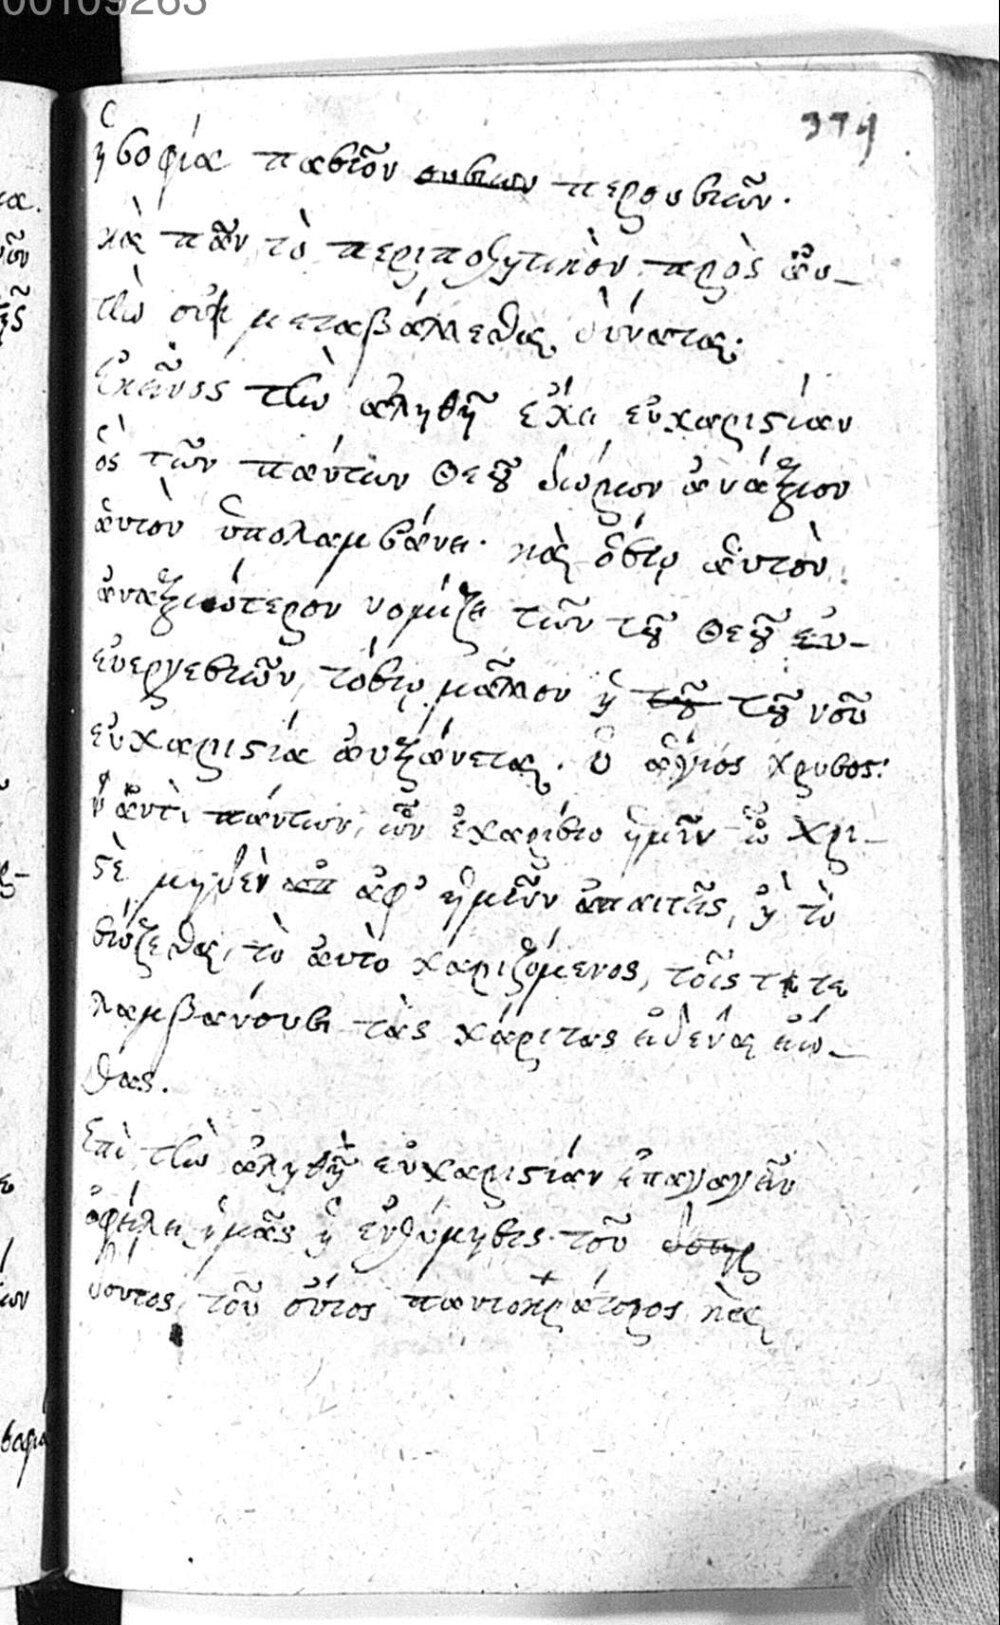 00109263
374
ἡ σοφία πασῶν ουσιων περουσιῶν.
καὶ πᾶν τὸ περιποιητικὸν πρὸς ἀυ-
τὴν οὐκ μεταβάλλεσθαι δύναται.
Ἐκεῖνος τὴν ἀληθῆ ἔχει ευχαριστίαν
ὁς τῶν πάντων Θεοῦ δώρων ἀνάξιον
ἀυτὸν ὑπολαμβάνει. καὶ ὅσῳ ἀυτὸν
ἀναξιώτερον νομίζει τῶν τοῦ Θεοῦ ευ-
ευεργεσιῶν, τόσῳ μᾶλλον ἡ τοῦ τοῦ νοῦ
ευχαριστία αυξάνεται. ὁ ἅγιος χρυσος:
ἀντὶ πάντων, ὧν ἐχαρίσω ἡμῖν ὦ χρι-
στὲ μηδὲν απ ἀφ' ἡμῶν ἀπαιτεῖς, ἢ τὸ
σώζεσθαι, τὸ ἀυτὸ χαριζόμενος, τοῖς
λαμβάνουσι τὰς χάριτας εἰδέναι εἰω-
θας.
Ἐπὶ τὴν ἀληθῆ ευχαριστίαν ἐπαγαγεῖν
ὀφείλει ἡμᾶς ἡ ἐνθύμησις τοῦ
δόντος, τοῦ ὄντος παντοκράτορος καὶ